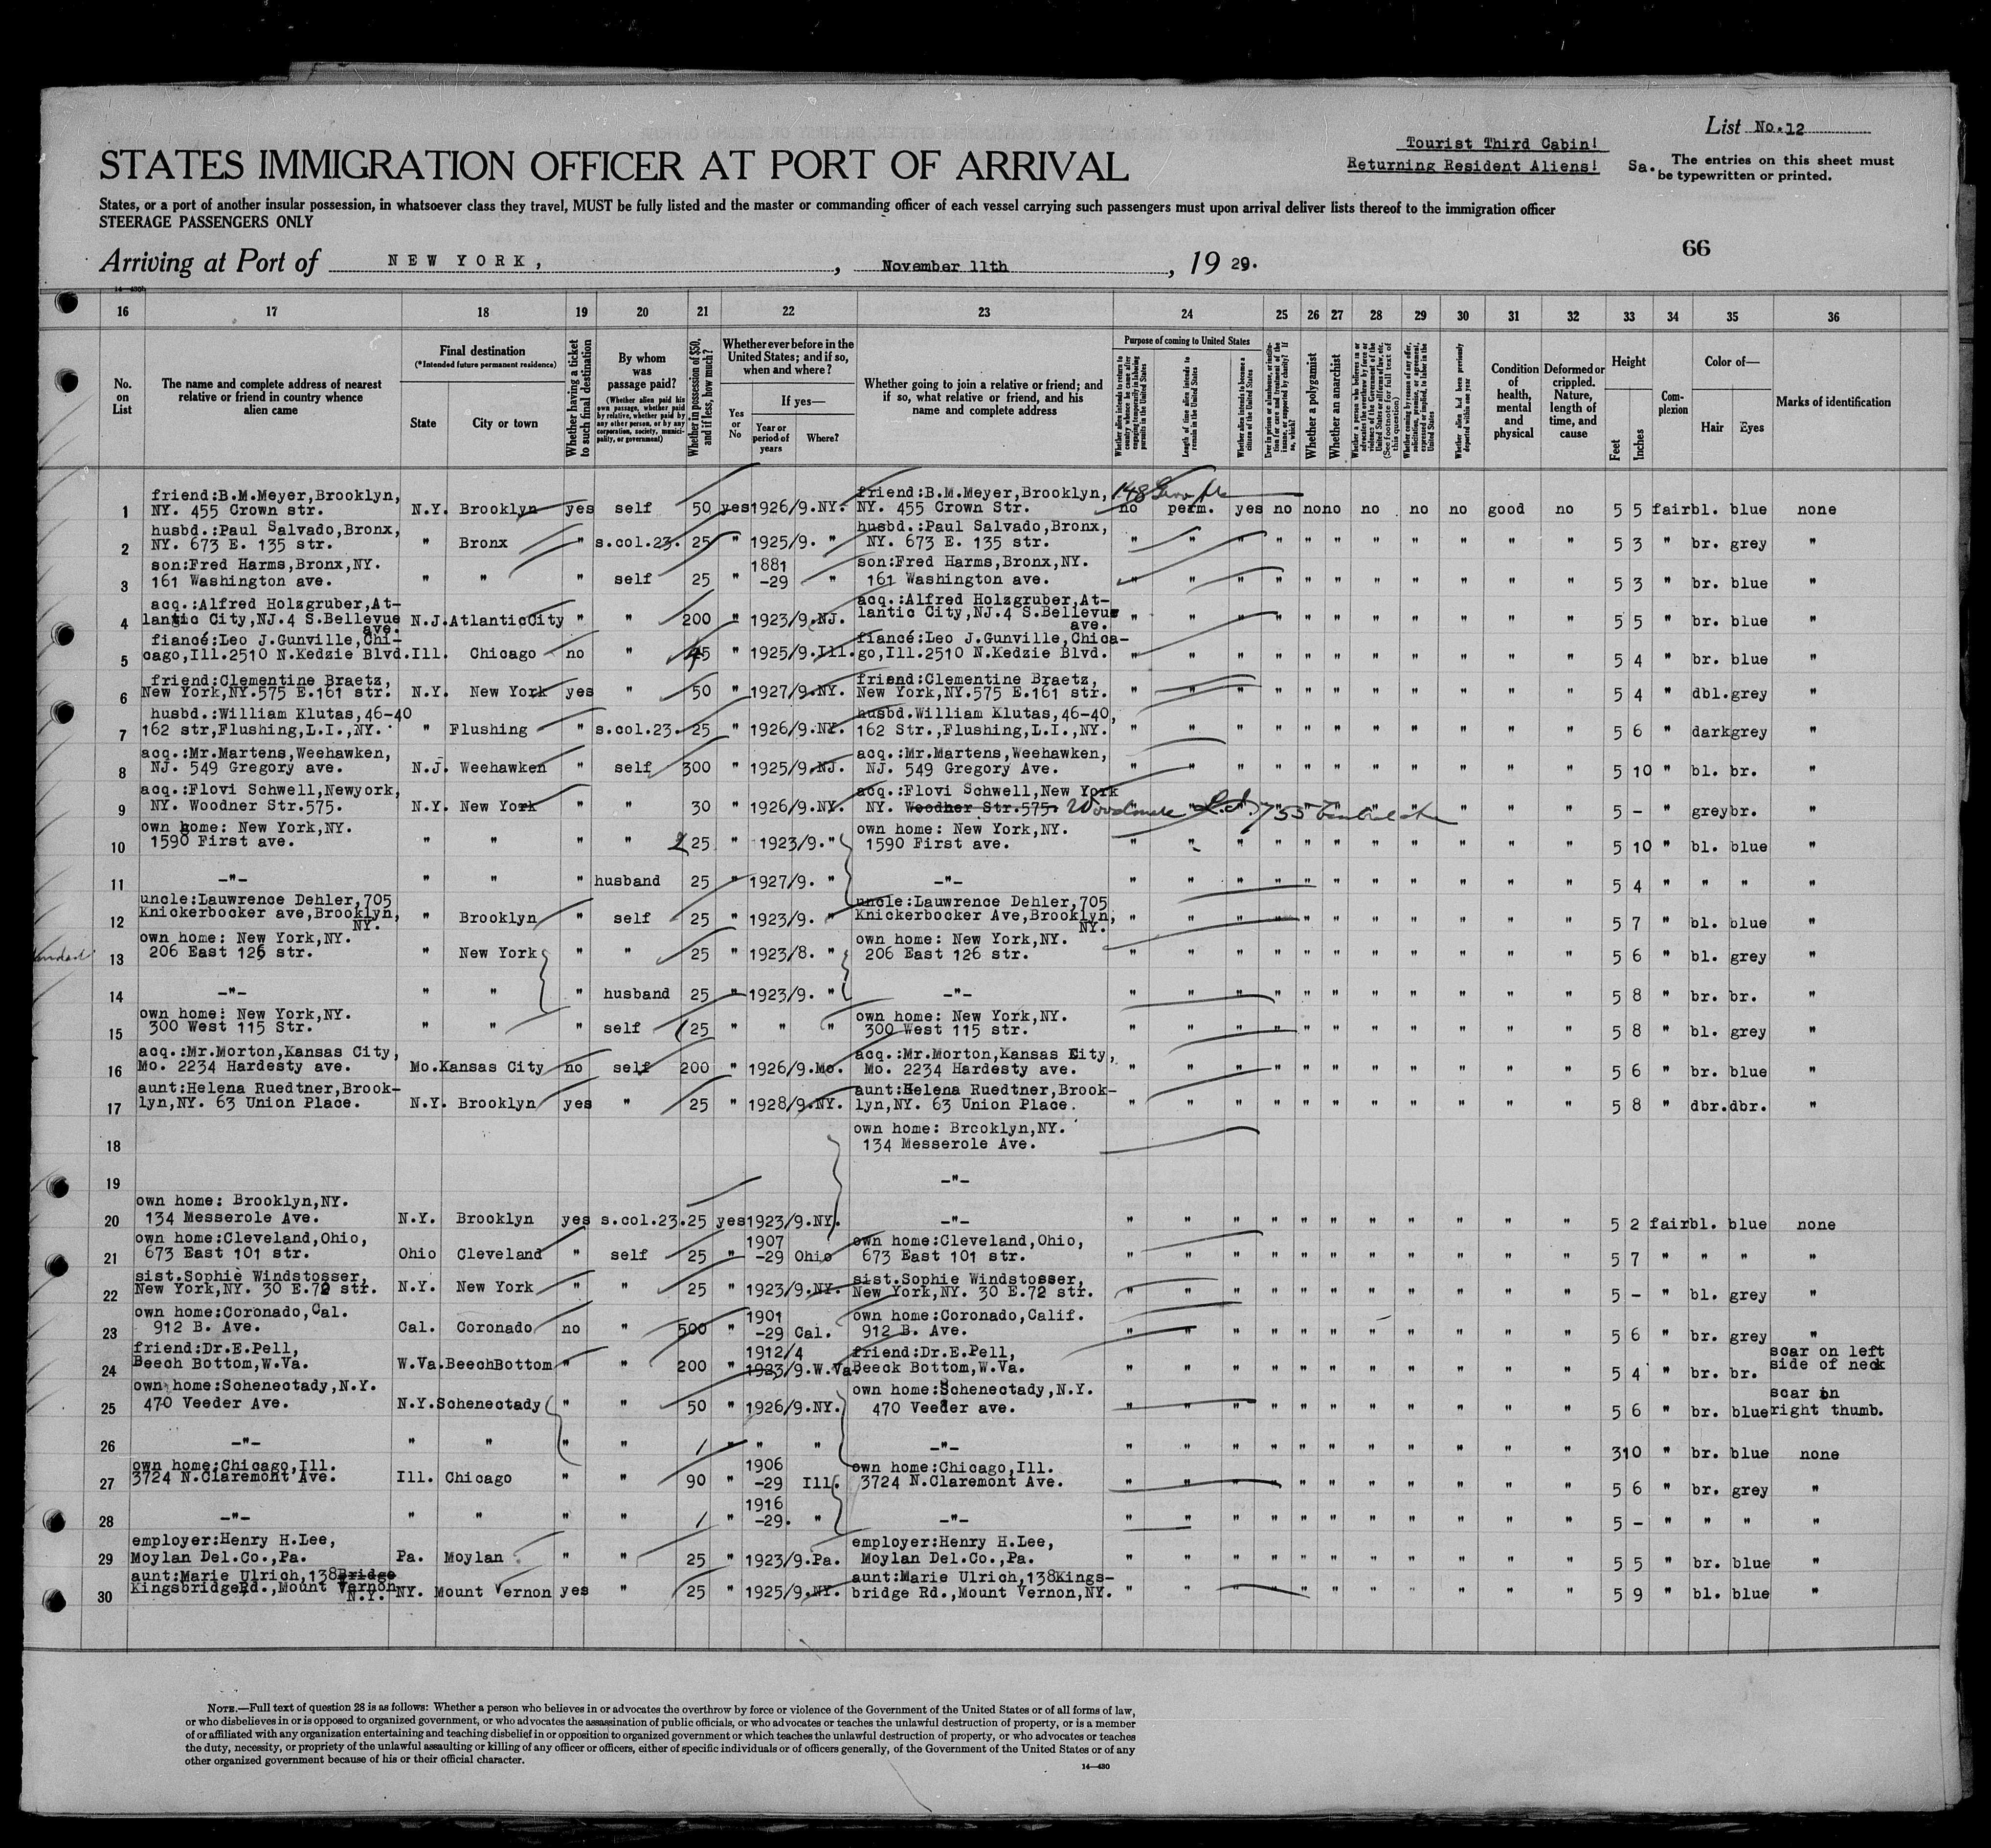 List No.12
Tourist Third Cabin!
Returning Resident Aliens!
Sa. The entries on this sheet must
be typewritten or printed.
STATES IMMIGRATION OFFICER AT PORT OF ARRIVAL
States, or a port of another insular possession, in whatsoever class they travel, MUST be fully listed and the master or commanding officer of each vessel carrying such passengers must upon arrival deliver lists thereof to the immigration officer
STEERAGE PASSENGERS ONLY
66
Arriving at Port of NEW YORK, , November 11th , 19 29.
16 17 18 19 20 21 22 23 24 25 26 27 28 29 30 31 32 33 34 35 36
No. on List
The name and complete address of nearest relative or friend in country whence alien came
Final destination (*Intended future permanent residence)
State
City or town
Whether having a ticket to such final destination
By whom was passage paid?
(Whether alien paid his own passage, whether paid by relative, whether paid by any other person, or by any corporation, society, municipality, or government)
Whether in possession of $50, and if less, how much?
Whether ever before in the United States; and if so, when and where?
Yes or No
If yes—
Year or period of years
Where?
Whether going to join a relative or friend; and if so, what relative or friend, and his name and complete address
Purpose of coming to United States
Whether alien intends to return to country whence he came after engaging temporarily in laboring pursuits in the United States
Length of time alien intends to remain in the United States
Whether alien intends to become a citizen of the United States
Ever in prison or almshouse, or institution for care and treatment of the insane, or supported by charity? If so, which?
Whether a polygamist
Whether an anarchist
Whether a person who believes in or advocates the overthrow by force or violence of the Government of the United States or all forms of law, etc. (See footnote for full text of this question)
Whether coming by reason of any offer, solicitation, promise, or agreement, expressed or implied, to labor in the United States
Whether alien had been previously deported within one year
Condition of health, mental and physical
Deformed or crippled. Nature, length of time, and cause
Height
Feet
Inches
Complexion
Color of—
Hair
Eyes
Marks of identification
1 friend:B.M.Meyer,Brooklyn, friend:B.M.Meyer,Brooklyn, 148
NY. 455 Crown str. N.Y. Brooklyn yes self 50 yes 1926/9.NY. NY. 455 Crown Str. no perm. yes no no no no no no good no 5 5 fair bl. blue none
2 husbd.:Paul Salvado,Bronx, husbd.:Paul Salvado,Bronx,
NY. 673 E. 135 str. " Bronx " s.col.23. 25 " 1925/9. " NY. 673 E. 135 str. " " " " " " " " " " " 5 3 " br. grey "
3 son:Fred Harms,Bronx,NY. 1881 son:Fred Harms,Bronx,NY.
161 Washington ave. " " " self 25 " -29 " 161 Washington ave. " " " " " " " " " " " 5 3 " br. blue "
4 acq.:Alfred Holzgruber,At- acq.:Alfred Holzgruber,At-
lantic City,NJ.4 S.Bellevue N.J. AtlanticCity " " 200 " 1923/9.NJ. lantic City,NJ.4 S.Bellevue " " " " " " " " " " " 5 5 " br. blue "
ave. ave.
5 fiancé:Leo J.Gunville,Chi- fiancé:Leo J.Gunville,Chica-
cago,Ill.2510 N.Kedzie Blvd. Ill. Chicago no " 45 " 1925/9.Ill. go,Ill.2510 N.Kedzie Blvd. " " " " " " " " " " " 5 4 " br. blue "
6 friend:Clementine Braetz, friend:Clementine Braetz,
New York,NY.575 E.161 str. N.Y. New York yes " 50 " 1927/9.NY. New York,NY.575 E.161 str. " " " " " " " " " " " 5 4 " dbl. grey "
7 husbd.:William Klutas,46-40 husbd.William Klutas,46-40,
162 str,Flushing,L.I.,NY. " Flushing " s.col.23. 25 " 1926/9.NY. 162 Str.,Flushing,L.I.,NY. " " " " " " " " " " " 5 6 " dark grey "
8 acq.:Mr.Martens,Weehawken, acq.:Mr.Martens,Weehawken,
NJ. 549 Gregory ave. N.J. Weehawken " self 300 " 1925/9.NJ. NJ. 549 Gregory Ave. " " " " " " " " " " " 5 10 " bl. br. "
9 acq.:Flovi Schwell,Newyork, acq.:Flovi Schwell,New York
NY. Woodner Str.575. N.Y. New York " " 30 " 1926/9.NY. NY. Woodner Str.575. Woodmere L.I. 755 " " " " " " " " " " " 5 - " grey br. "
10 own home: New York,NY. own home: New York,NY.
1590 First ave. " " " " 225 " 1923/9. " 1590 First ave. " " " " " " " " " " " 5 10 " bl. blue "
11 -"- " " " husband 25 " 1927/9. " -"- " " " " " " " " " " " 5 4 " " " "
12 uncle:Lauwrence Dehler,705 uncle:Lauwrence Dehler,705
Knickerbocker ave,Brooklyn, " Brooklyn " self 25 " 1923/9. " Knickerbocker Ave,Brooklyn, " " " " " " " " " " " 5 7 " bl. blue "
NY. NY.
13 own home: New York,NY. own home: New York,NY.
206 East 126 str. " New York " " 25 " 1923/8. " 206 East 126 str. " " " " " " " " " " " 5 6 " bl. grey "
14 -"- " " " husband 25 " 1923/9. " -"- " " " " " " " " " " " 5 8 " br. br. "
15 own home: New York,NY. own home: New York,NY.
300 West 115 Str. " " " self 25 " " " 300 West 115 str. " " " " " " " " " " " 5 8 " bl. grey "
16 acq.:Mr.Morton,Kansas City, acq.:Mr.Morton,Kansas City,
Mo. 2234 Hardesty ave. Mo. Kansas City no self 200 " 1926/9.Mo. Mo. 2234 Hardesty ave. " " " " " " " " " " " 5 6 " br. blue "
17 aunt:Helena Ruedtner,Brook- aunt:Helena Ruedtner,Brook-
lyn,NY. 63 Union Place. N.Y. Brooklyn yes " 25 " 1928/9.NY. lyn,NY. 63 Union Place. " " " " " " " " " " " 5 8 " dbr. dbr. "
18 own home: Brooklyn,NY.
134 Messerole Ave.
19 -"-
20 own home: Brooklyn,NY.
134 Messerole Ave. N.Y. Brooklyn yes s.col.23. 25 yes 1923/9.NY. -"- " " " " " " " " " " " 5 2 fair bl. blue none
21 own home:Cleveland,Ohio, 1907 own home:Cleveland,Ohio,
673 East 101 str. Ohio Cleveland " self 25 " -29 Ohio 673 East 101 str. " " " " " " " " " " " 5 7 " " " "
22 sist.Sophie Windstosser, sist.Sophie Windstosser,
New York,NY. 30 E.72 str. N.Y. New York " " 25 " 1923/9.NY. New York,NY. 30 E.72 str. " " " " " " " " " " " 5 - " bl. grey "
23 own home:Coronado,Cal. 1901 own home:Coronado,Calif.
912 B. Ave. Cal. Coronado no " 500 " -29 Cal. 912 B. Ave. " " " " " " " " " " " 5 6 " br. grey "
24 friend:Dr.E.Pell, 1912/4 friend:Dr.E.Pell, scar on left
Beech Bottom,W.Va. W.Va. BeechBottom " " 200 " 1923/9.W.Va. Beeck Bottom,W.Va. " " " " " " " " " " " 5 4 " br. br. side of neck
25 own home:Schenectady,N.Y. own home:Schenectady,N.Y. scar on
470 Veeder Ave. N.Y. Schenectady " " 50 " 1926/9.NY. 470 Veeder ave. " " " " " " " " " " " 5 6 " br. blue right thumb.
26 -"- " " " " / " " " -"- " " " " " " " " " " " 3 10 " br. blue none
27 own home:Chicago,Ill. 1906 own home:Chicago,Ill.
3724 N.Claremont Ave. Ill. Chicago " " 90 " -29 Ill. 3724 N.Claremont Ave. " " " " " " " " " " " 5 6 " br. grey "
28 -"- " " " " / " 1916 -29. " -"- " " " " " " " " " " " 5 - " " " "
29 employer:Henry H.Lee, employer:Henry H.Lee,
Moylan Del.Co.,Pa. Pa. Moylan " " 25 " 1923/9.Pa. Moylan Del.Co.,Pa. " " " " " " " " " " " 5 5 " br. blue "
30 aunt:Marie Ulrich,138Bridge aunt:Marie Ulrich,138Kings-
KingsbridgeRd.,Mount Vernon NY. Mount Vernon yes " 25 " 1925/9.NY. bridge Rd.,Mount Vernon,NY. " " " " " " " " " " " 5 9 " bl. blue "
N.Y.
NOTE.—Full text of question 28 is as follows: Whether a person who believes in or advocates the overthrow by force or violence of the Government of the United States or of all forms of law,
or who disbelieves in or is opposed to organized government, or who advocates the assassination of public officials, or who advocates or teaches the unlawful destruction of property, or is a member
of or affiliated with any organization entertaining and teaching disbelief in or opposition to organized government or which teaches the unlawful destruction of property, or who advocates or teaches
the duty, necessity, or propriety of the unlawful assaulting or killing of any officer or officers, either of specific individuals or of officers generally, of the Government of the United States or of any
other organized government because of his or their official character.
14—430